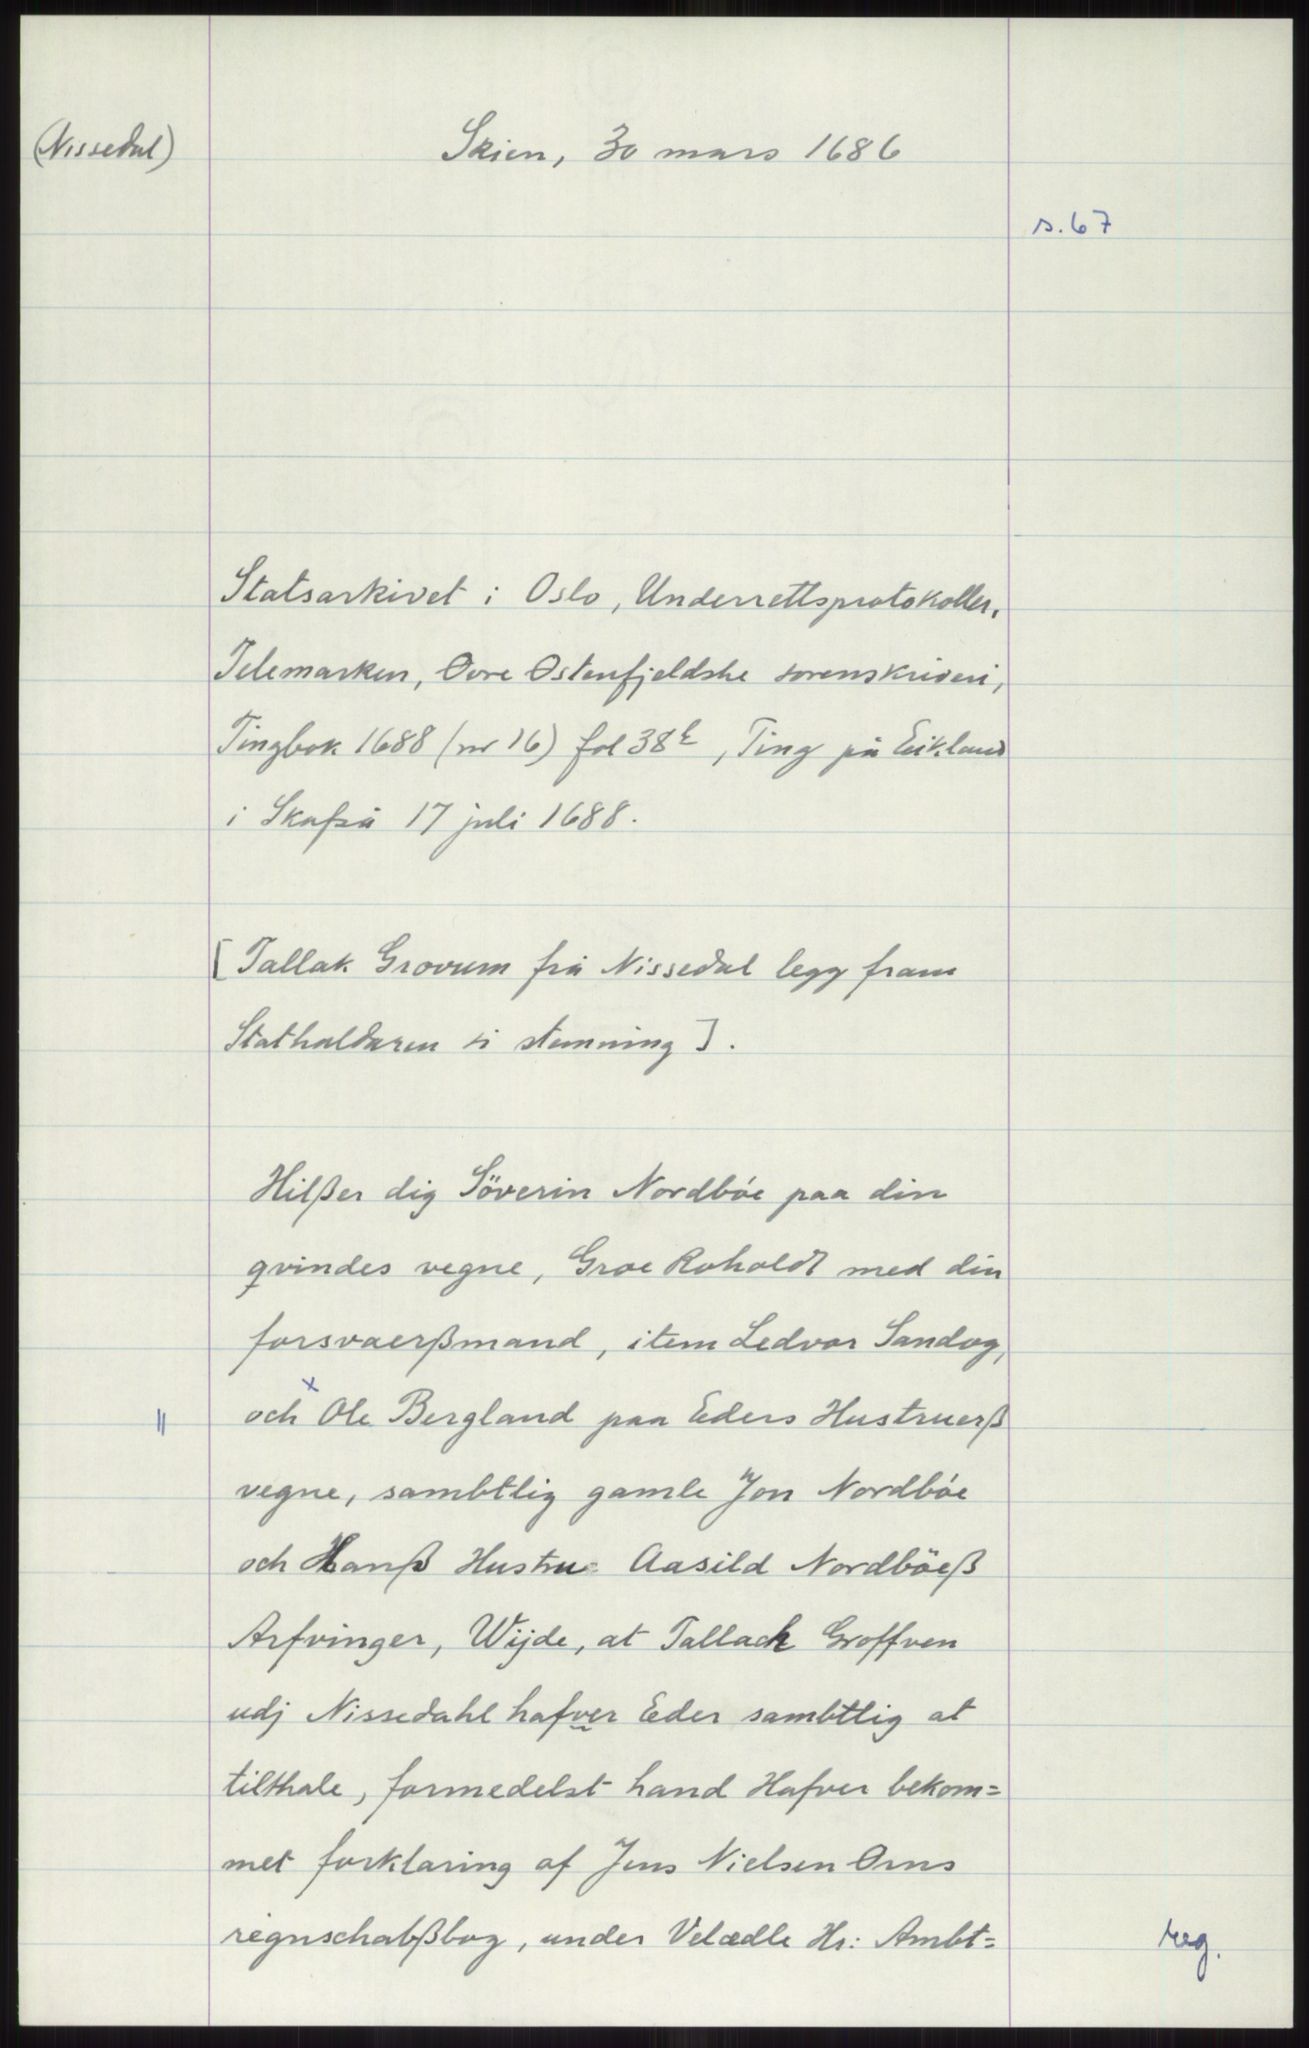 (Nissedal)
Skien, 30 mars 1686
s. 67
Statsarkivet i Oslo, Underrettsprotokoller,
Telemarken, Øvre Østenfjeldske sorenskriveri,
Tingbok 1688 (nr 16) fol 38b, Ting på Eikland
i Skafså 17 juli 1688.
[Tallak Grovum frå Nissedal legg fram
Stathaldaren si stemning].
Hilßer dig Söverin Nordbóe paa din
qvindes vegne, Groe Roholdt med din
forsvaerßmand, item Ledvor Sandog,
" och x Ole Bergland paa Eders Hustruerß
vegne, sambtlig gamle Jon Nordbóe
och Hanß Hustru= Aasild Nordböeß
Arfvinger, Wijde, at Tallach Groffven
udj Nissedahl hafver Eder sambtlig at
tilthale, formedelst hand Hafver bekom=
met forklaring af Jens Nielsen Örns
regnschabßbog, under Velædle Hr: Ambt=
reg.